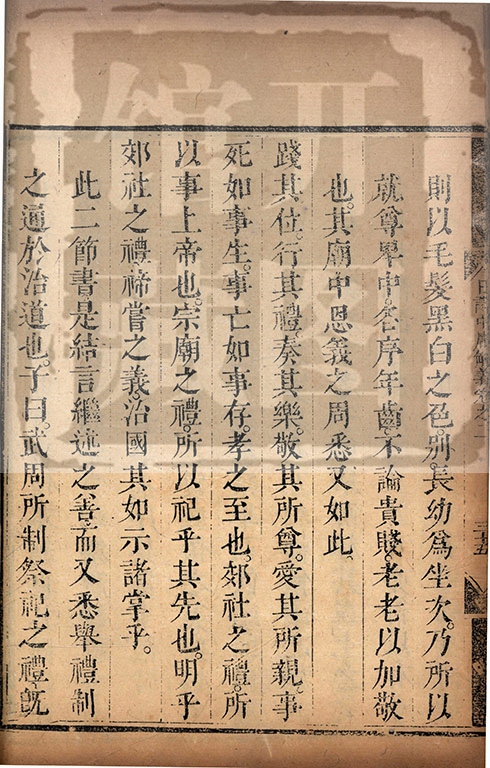 則以毛髮黑白之色別長幼爲坐次乃所以
就尊卑中各序年齒不論貴賤老老以加敬
也其廟中恩義之周悉又如此
踐其位行其禮奏其樂敬其所尊愛其所親事
死如事生事亡如事存孝之至也郊社之禮所
以事上帝也宗廟之禮所以祀乎其先也明乎
郊社之禮禘嘗之義治國其如示諸掌乎
此二節書是結言繼述之善而又悉舉禮制
之通於治道也子曰武周所制祭祀之禮既